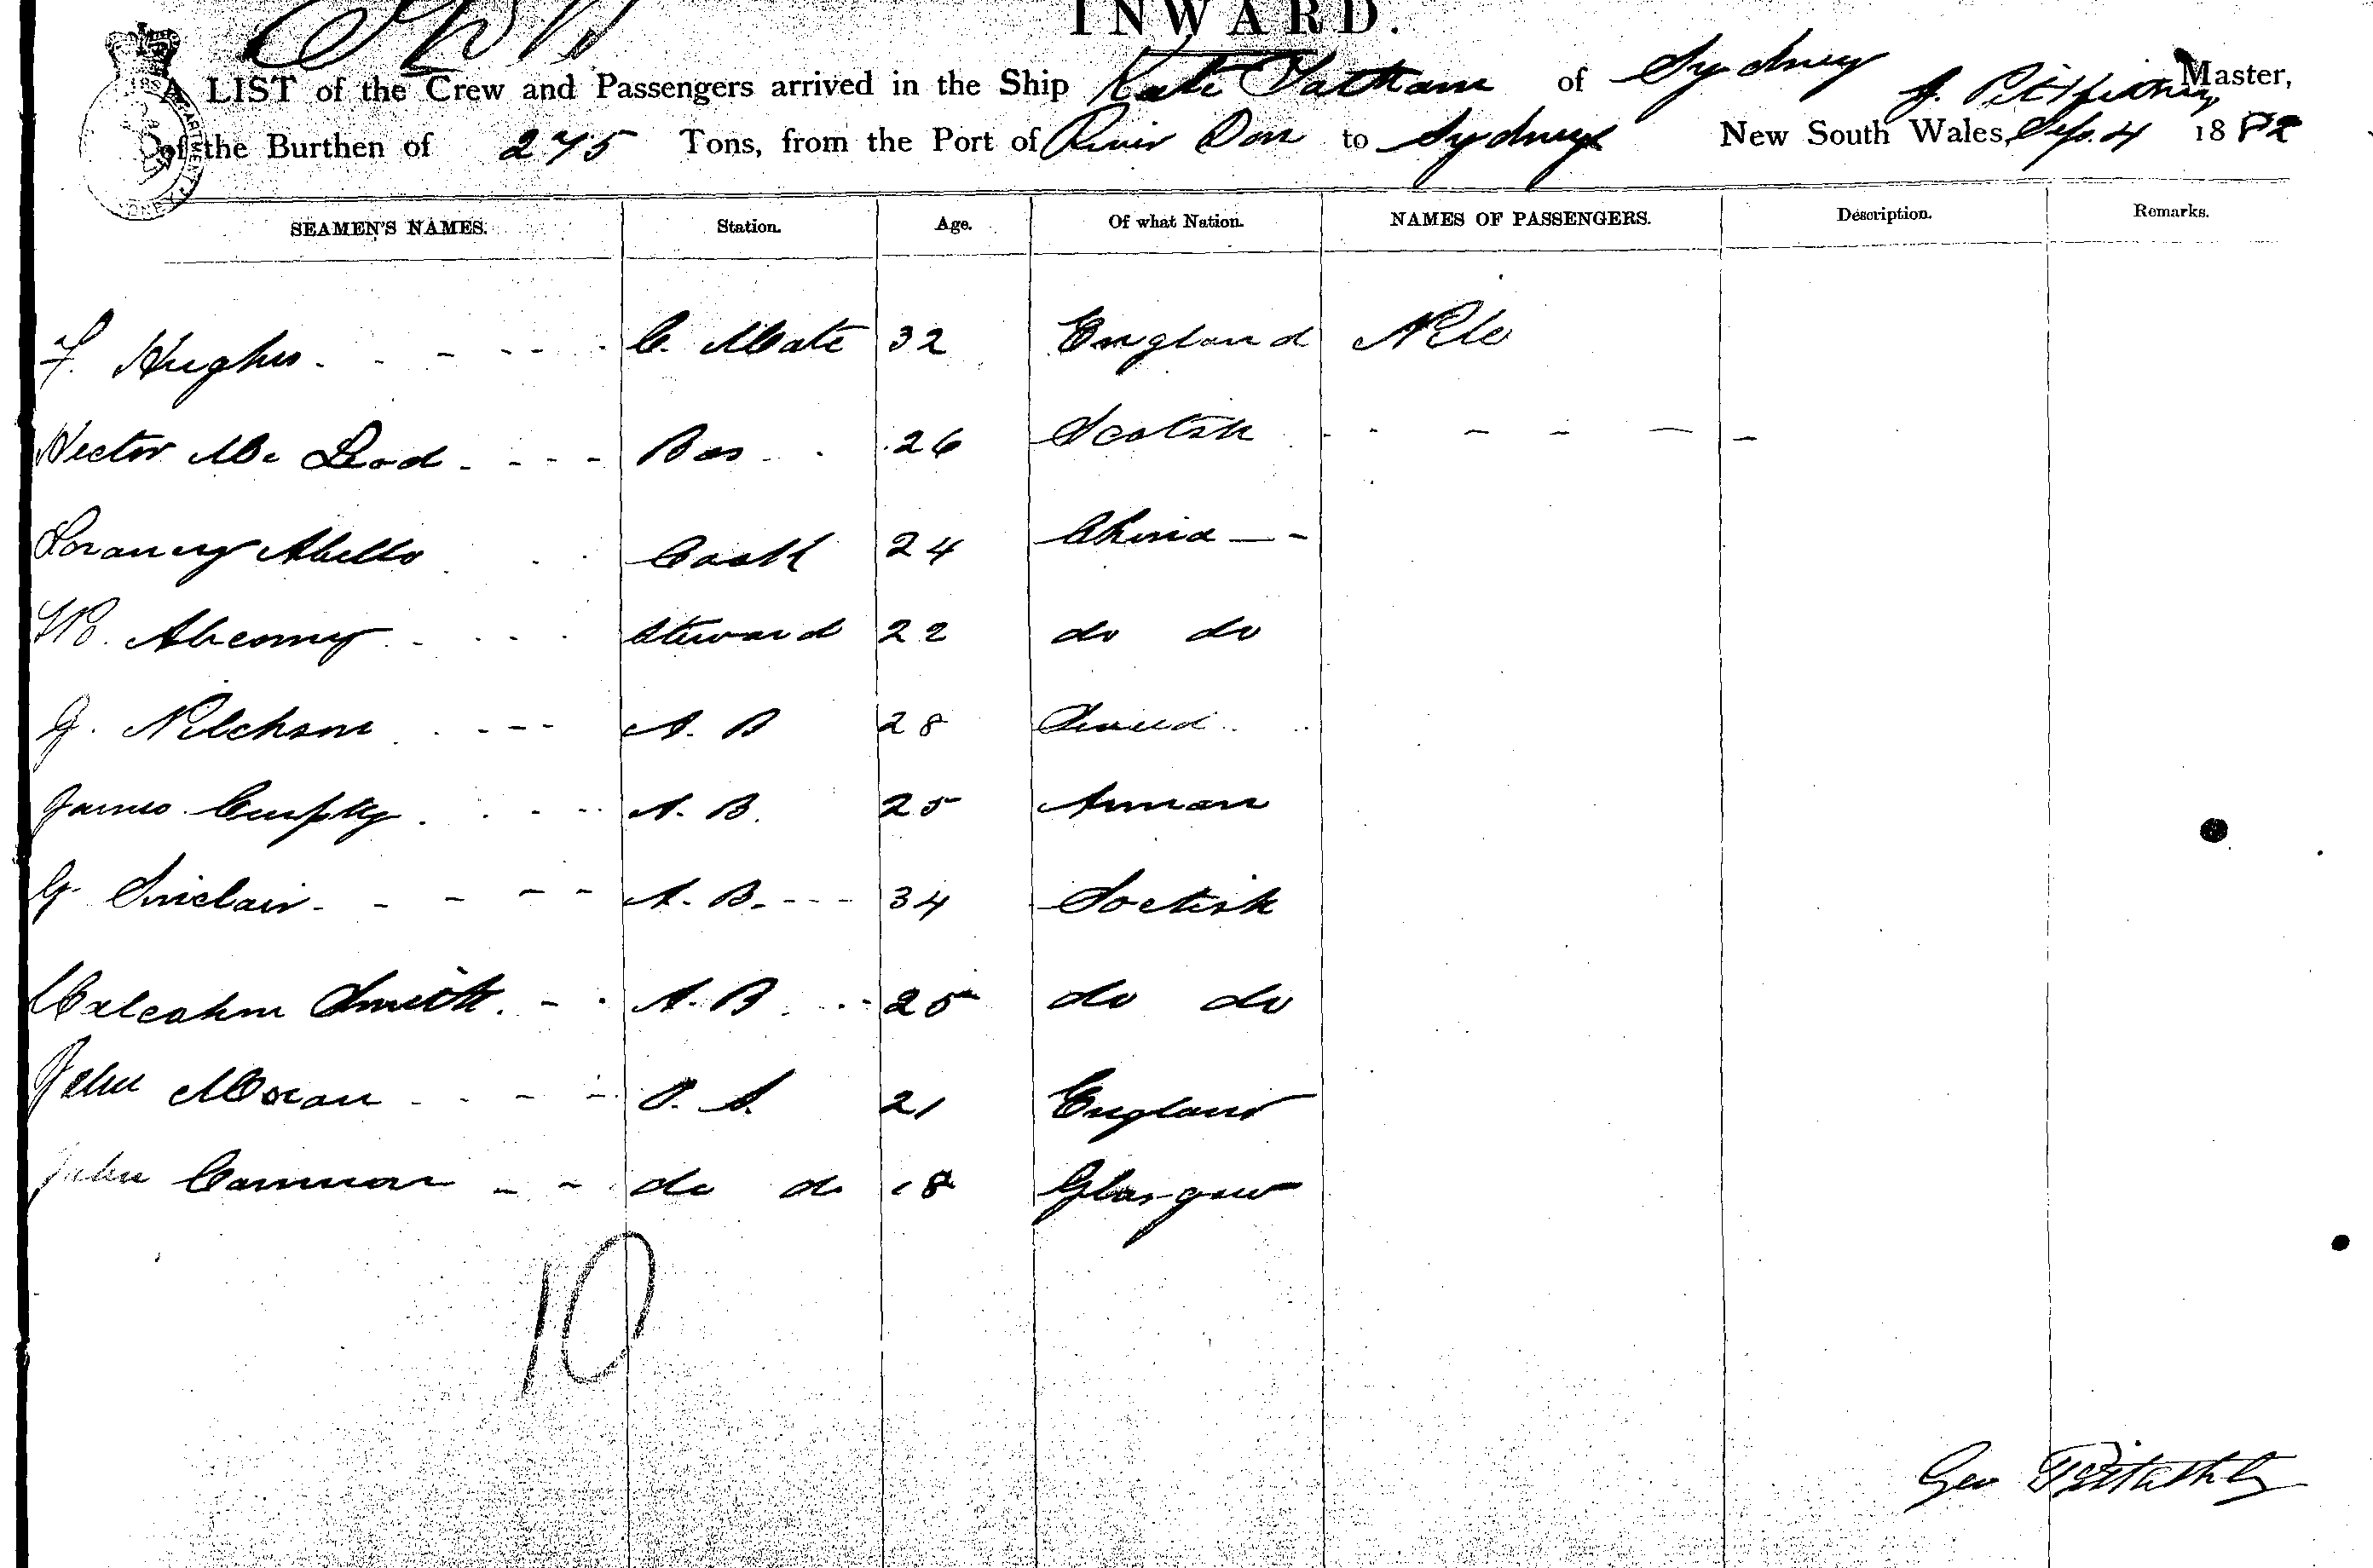 INWARD.
A LIST of the Crew and Passengers arrived in the Ship Kate Tatham of Sydney Master,
of the Burthen of 275 Tons, from the Port of River Don to Sydney New South Wales, Sep. 4 1882
SEAMEN'S NAMES. Station. Age. Of what Nation. NAMES OF PASSENGERS. Description. Remarks.
F. Hughes C. Mate 32 England Nile
Hector Mc Leod Bos 26 Scotish
Abello Cook 24 China
W. Steward 22 do do
G. A. B 28
James A. B. 25
G. Sinclair A. B. 34
Malcohm Smith A. B 25 do do
John Moran O. S. 21 England
John do do 18 Glasgow
10
Geo